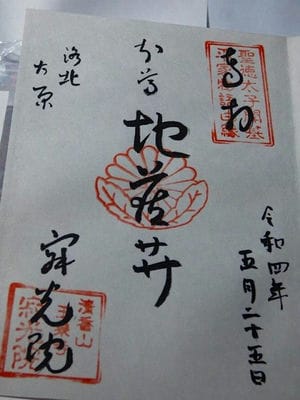 奉拝
聖徳太子開基
令和四年
五月二十五日
本尊
地蔵𦬇
洛北
大原
寂光院
清香山
寂光院